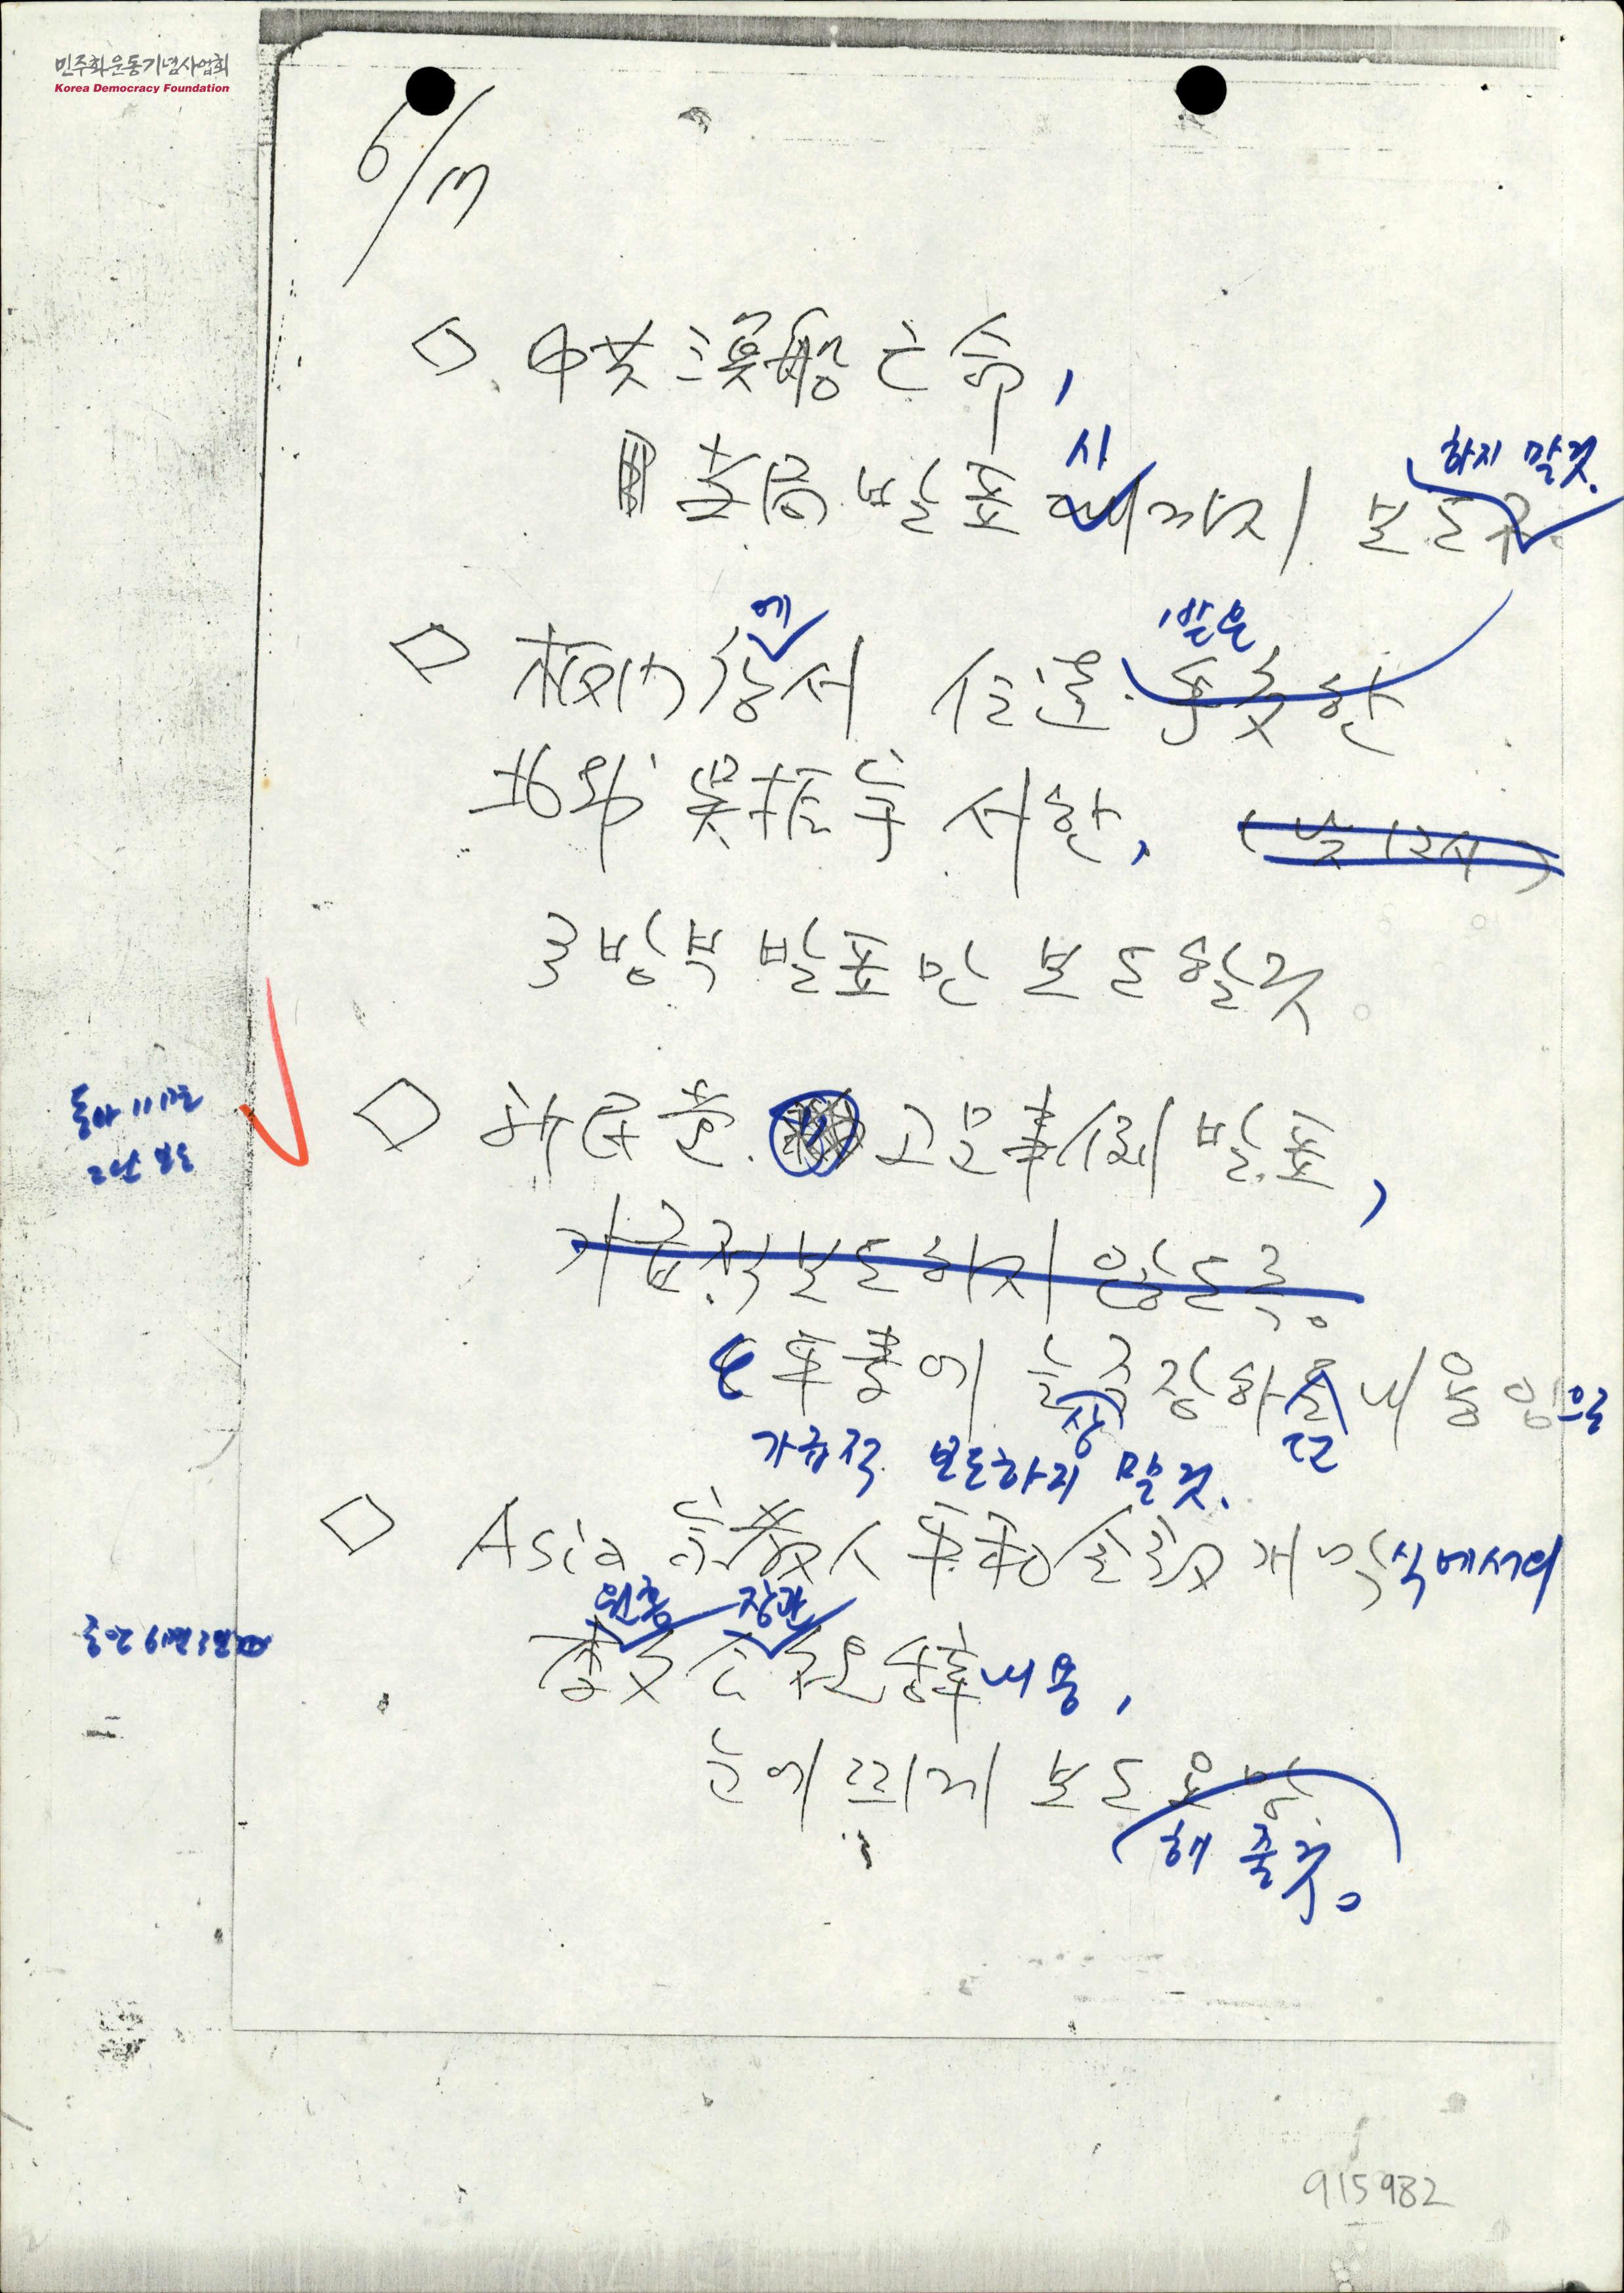 민주화운동기념사업회
Korea Democracy Foundation
6/17
◇ 中共漁船亡命,
當局 발표 때까지 보도
사
하지 말것.
◇ 板門店서 伝達
에
받은
北의 吳振宇 서한, (낮 12시)
국방부 발표만 보도할것
◇ 新民党 고문事例 발표,
동아 11면
2단 보도
가급적 보도하지 않도록.
軍書이 긴장하 내용임으로
가급적 보도하지 말것.
◇ Asia 宗敎人 平和会議 개막식에서의
원홍 장관
李文公 祝辭 내용,
중앙
눈에 띄게 보도요망.
해 줄것.
915982